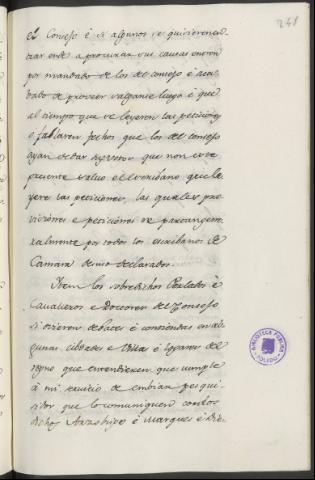 241
el Consejo è si algunos se quisieren en
trar ende a procurar sus causas enton
por mandado de los del consejo è aca
bado de proveer salganse luego è que
al tiempo que se leyeren las peticiones
è fablaren fechos que los del consejo
ayan de dar que non este
presente salvo el escribano que le
yere las peticiones, las quales pro
visiones e peticiones se
ralmente por todos los escribanos de
Camara de suso declarados.
Iten los sobredichos Perlados è
Cavalleros e Doctores del Consejo
si vieren debates è contiendas en al
gunas cibdades e Villas è logares del
regno que entendieren que cumple
à mi servicio de embiar pesqui
sidor que lo comuniquen con los
dichos Arzobispo è Marques è Die
BIBLIOTECA PÚBLICA
TOLEDO